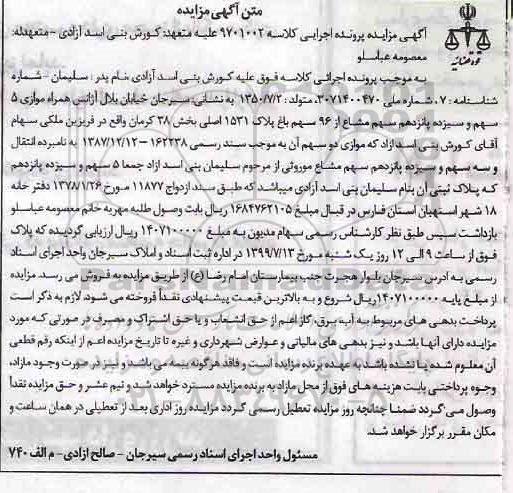 متن آگهی مزایده
آگهی مزایده پرونده اجرایی کلاسه ۹۷۰۱۰۰۲ علیه متعهد: کورش بنی اسد آزادی – متعهدله:
معصومه عباسلو
به موجب پرونده اجرائی کلاسه فوق علیه کورش بنی اسد آزادی، نام پدر: سلیمان – شماره
شناسنامه: ۷، شماره ملی ۳۰۷۱۴۰۰۴۷۰، متولد: ۱۳۵۰/۷/۲ به نشانی: سیرجان خیابان بلال آژانس همراه موازی ۵
سهم و سیزده پانزدهم سهم مشاع از ۹۶ سهم باغ پلاک ۱۵۳۱ اصلی بخش ۳۸ کرمان واقع در فریزین ملکی سهام
آقای کورش بنی اسد آزاد که موازی دو سهم آن به موجب سند رسمی ۱۶۲۳۳۸ – ۱۳۸۷/۱۲/۱۲ به نامبرده انتقال
و سه سهم و سیزده پانزدهم سهم مشاع موروثی از مرحوم سلیمان بنی اسد آزاد جمعا ۵ سهم و سیزده پانزدهم
که پلاک ثبتی آن بنام سلیمان بنی اسد آزادی میباشد که طبق سند ازدواج ۱۱۸۷۷ مورخ ۱۳۷۸/۱/۲۶ دفتر خانه
۱۸ شهر استهبان استان فارس در قبال مبلغ ۱۶۸۴۷۶۲۱۰۵ ریال بابت وصول طلبه مهریه خانم معصومه عباسلو
بازداشت سپس طبق نظر کارشناس رسمی سهام مدیون به مبلغ ۱۴۰۷۱۰۰۰۰۰ ریال ارزیابی گردیده که پلاک
فوق از ساعت ۹ الی ۱۲ روز یک شنبه مورخ ۱۳۹۹/۷/۱۳ در اداره ثبت اسناد و املاک سیرجان واحد اجرای اسناد
رسمی به آدرس سیرجان بلوار هجرت جنب بیمارستان امام رضا (ع) از طریق مزایده به فروش می رسد. مزایده
از مبلغ پایه ۱۴۰۷۱۰۰۰۰۰ ریال شروع و به بالاترین قیمت پیشنهادی نقداً فروخته می شود. لازم به ذکر است
پرداخت بدهی های مربوط به آب، برق، گاز اعم از حق انشعاب و یا حق اشتراک و مصرف در صورتی که مورد
مزایده دارای آنها باشد و نیز بدهی های مالیاتی و عوارض شهرداری و غیره تا تاریخ مزایده اعم از اینکه رقم قطعی
آن معلوم شده یا نشده باشد به عهده برنده مزایده است و فاقد هرگونه بیمه می باشد و نیز در صورت وجود مازاد،
وجوه پرداختی بابت هزینه های فوق از محل مازاد به برنده مزایده مسترد خواهد شد و نیم عشر و حق مزایده نقداً
وصول می گردد ضمنا چنانچه روز مزایده، تعطیل رسمی گردد مزایده روز اداری بعد از تعطیلی در همان ساعت و
مکان مقرر برگزار خواهد شد.
مسئول واحد اجرای اسناد رسمی سیرجان – صالح ازادی – م الف ۷۴۰